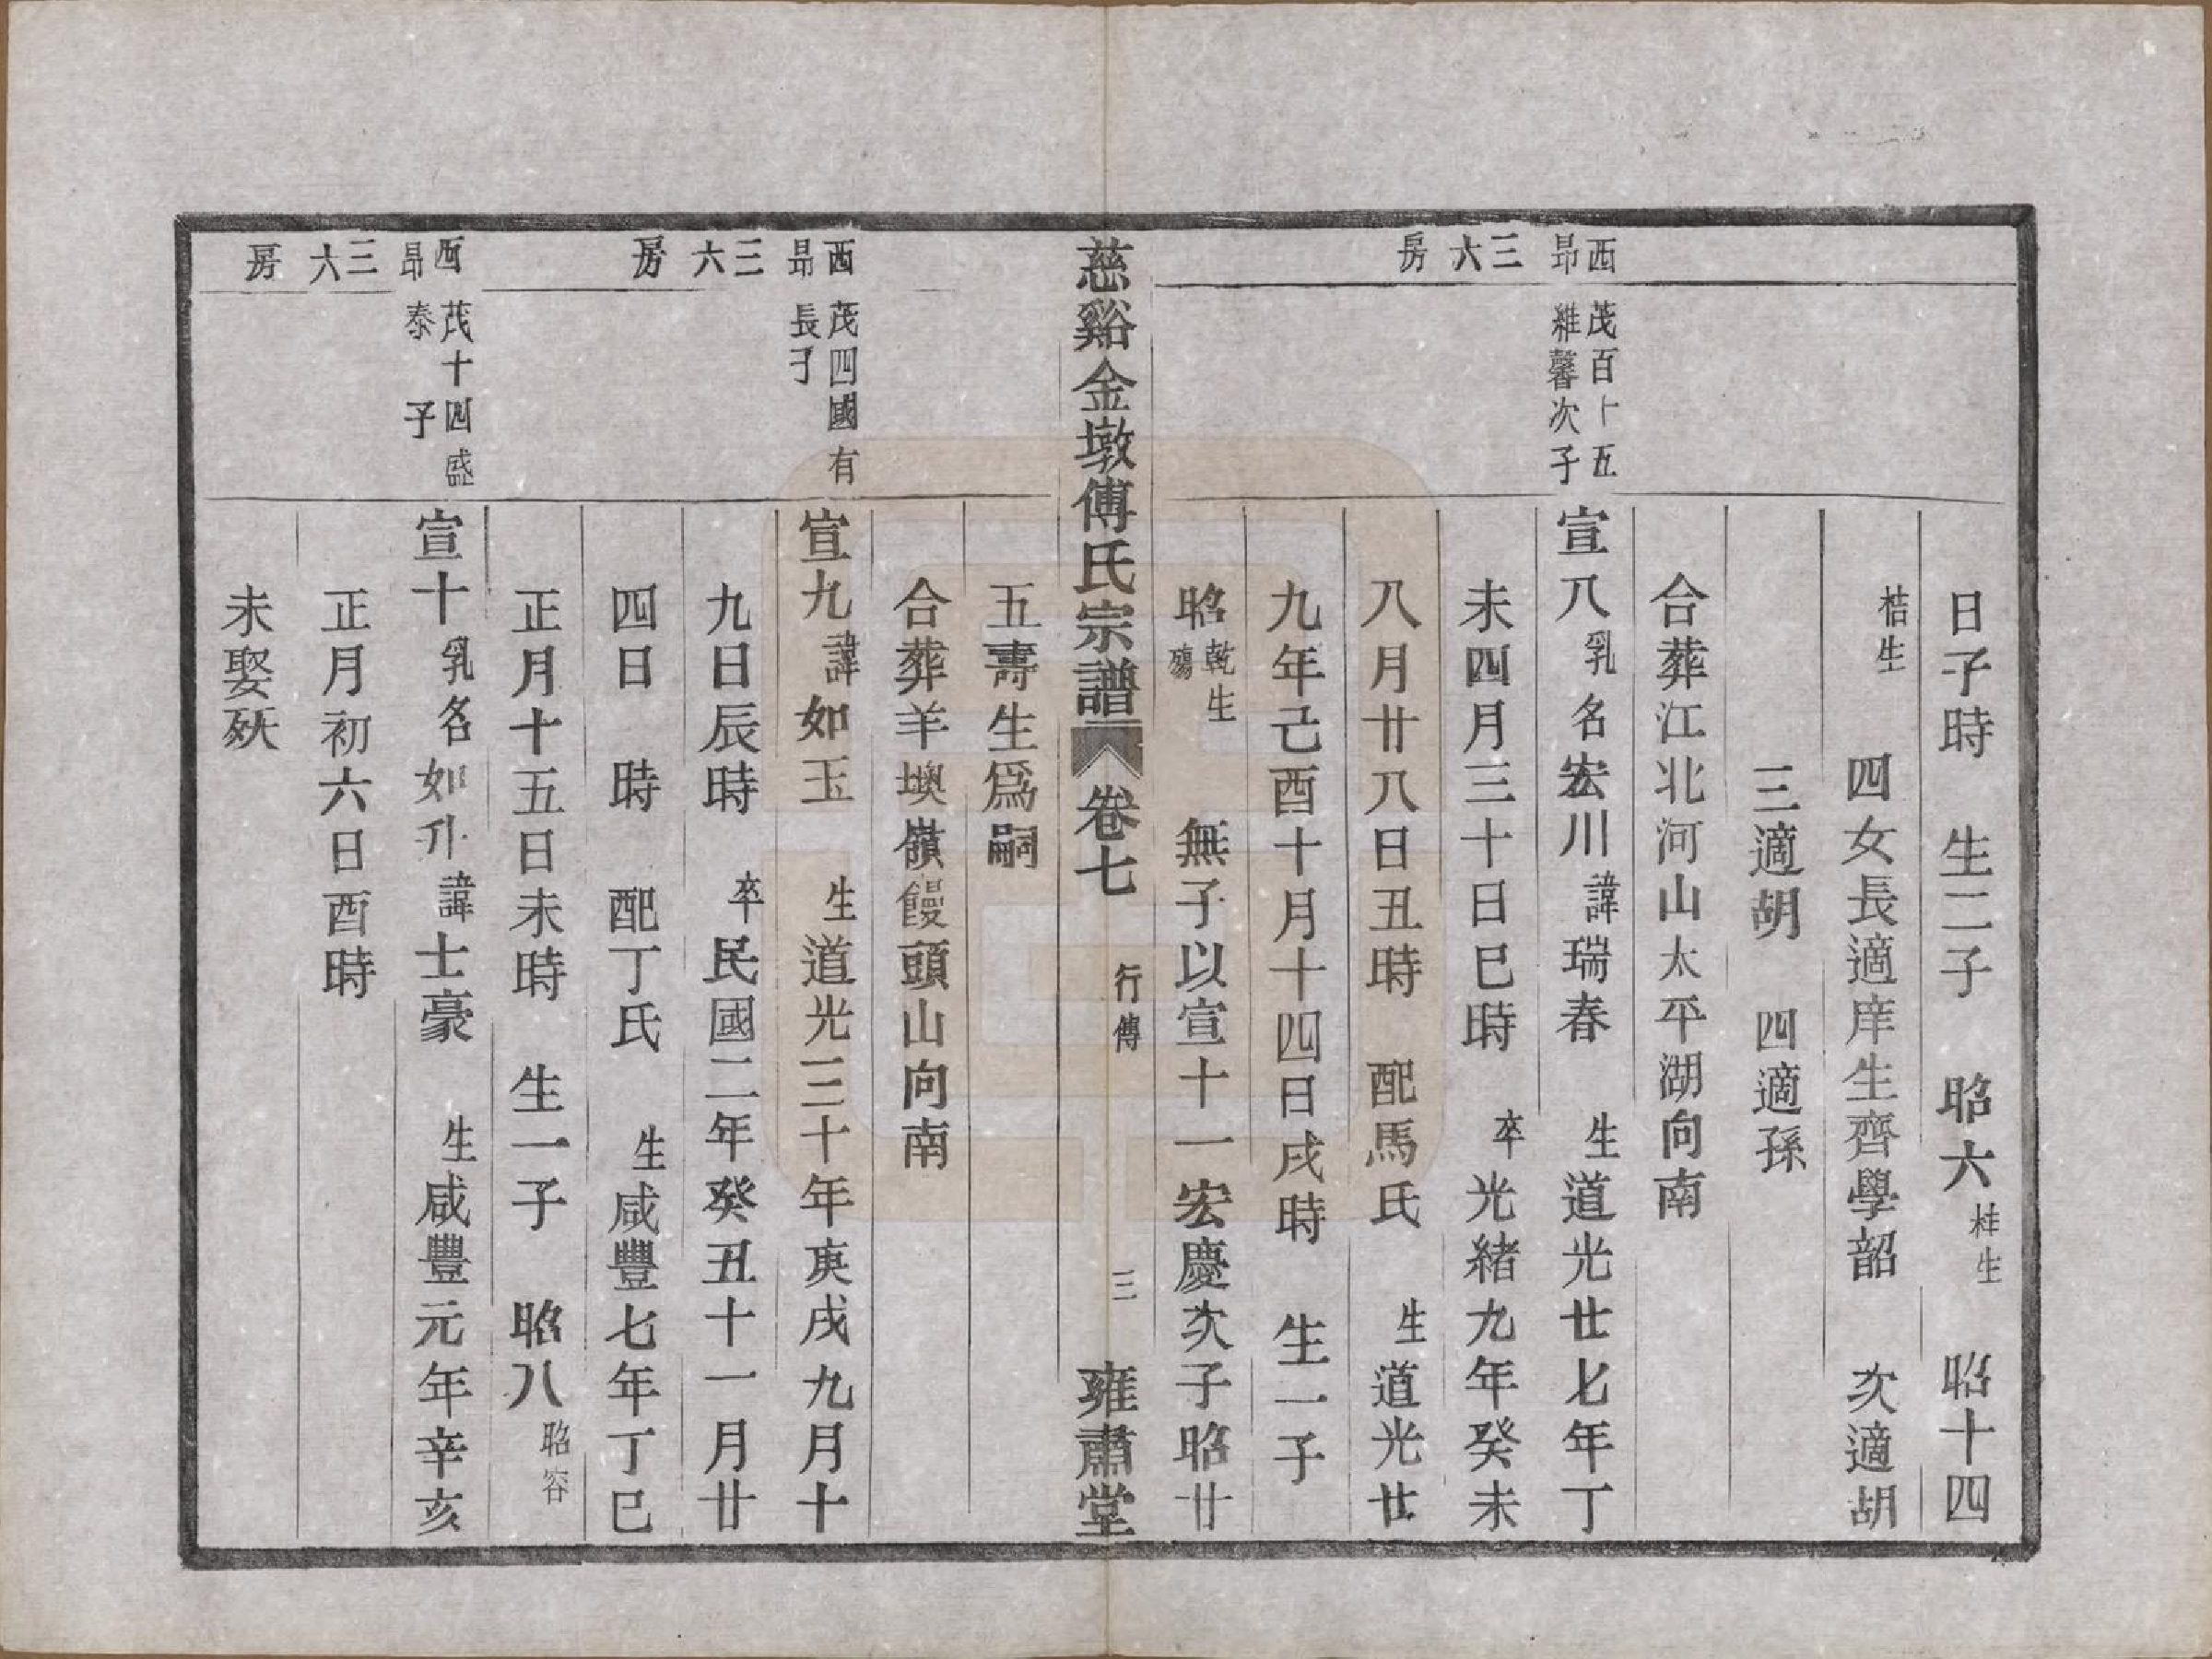 日子時　生二子　昭六桂生　昭十四
桔生　四女長適庠生齊學韶　次適胡
三適胡　四適孫
合葬江北河山太平湖向南
西昴三六房
茂百十五維馨次子
宣八乳名宏川諱瑞春　生道光廿七年丁
未四月三十日巳時　卒光緒九年癸未
八月廿八日丑時　配馬氏　生道光廿
九年己酉十月十四日戌時　生一子
昭乾生殤　無子以宣十一宏慶次子昭廿
慈谿金墩傅氏宗譜　卷七　行傳　三　雍肅堂
五壽生爲嗣
合葬羊墺嶺饅頭山向南
西昴三六房
茂四國有長子
宣九諱如玉　生道光三十年庚戌九月十
九日辰時　卒民國二年癸丑十一月廿
四日　時　配丁氏　生咸豐七年丁巳
正月十五日未時　生一子　昭八昭容
西昴三六房
茂十四盛泰子
宣十乳名如升諱士豪　生咸豐元年辛亥
正月初六日酉時
未娶殀